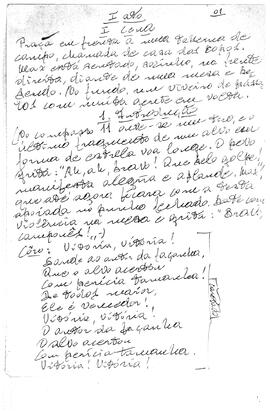 I ato 01
I cena
Praça em frente à uma taberna de
campo, chamada de casa dos copos.
Max está sentado, sozinho, na frente
direita, diante de uma mesa e be-
bendo. No fundo, um viveiro de pássa-
ros com muita gente em volta.
1. Introdução
(No compasso 11 ouve-se um tiro, e o
último fragmento de um alvo em
forma de estrella voa longe. O povo
grita: "Ah, ah, bravo! Que belo golpe!,
manifesta alegria e aplaude. Max,
que até agora ficara com a testa
apoiada no punho fechado. Bate com
violência na mesa e grita: "Bravo,
camponês!",-)
Côro: Vitória, vitória!
Saude ao autor da façanha,
Que o alvo acertou
Com perícia tamanha!
De todos maior,
Ele é vencedor!,
Vitória, vitória!
O autor da façanha
O alvo acertou
Com perícia tamanha.
Vitória! Vitória!